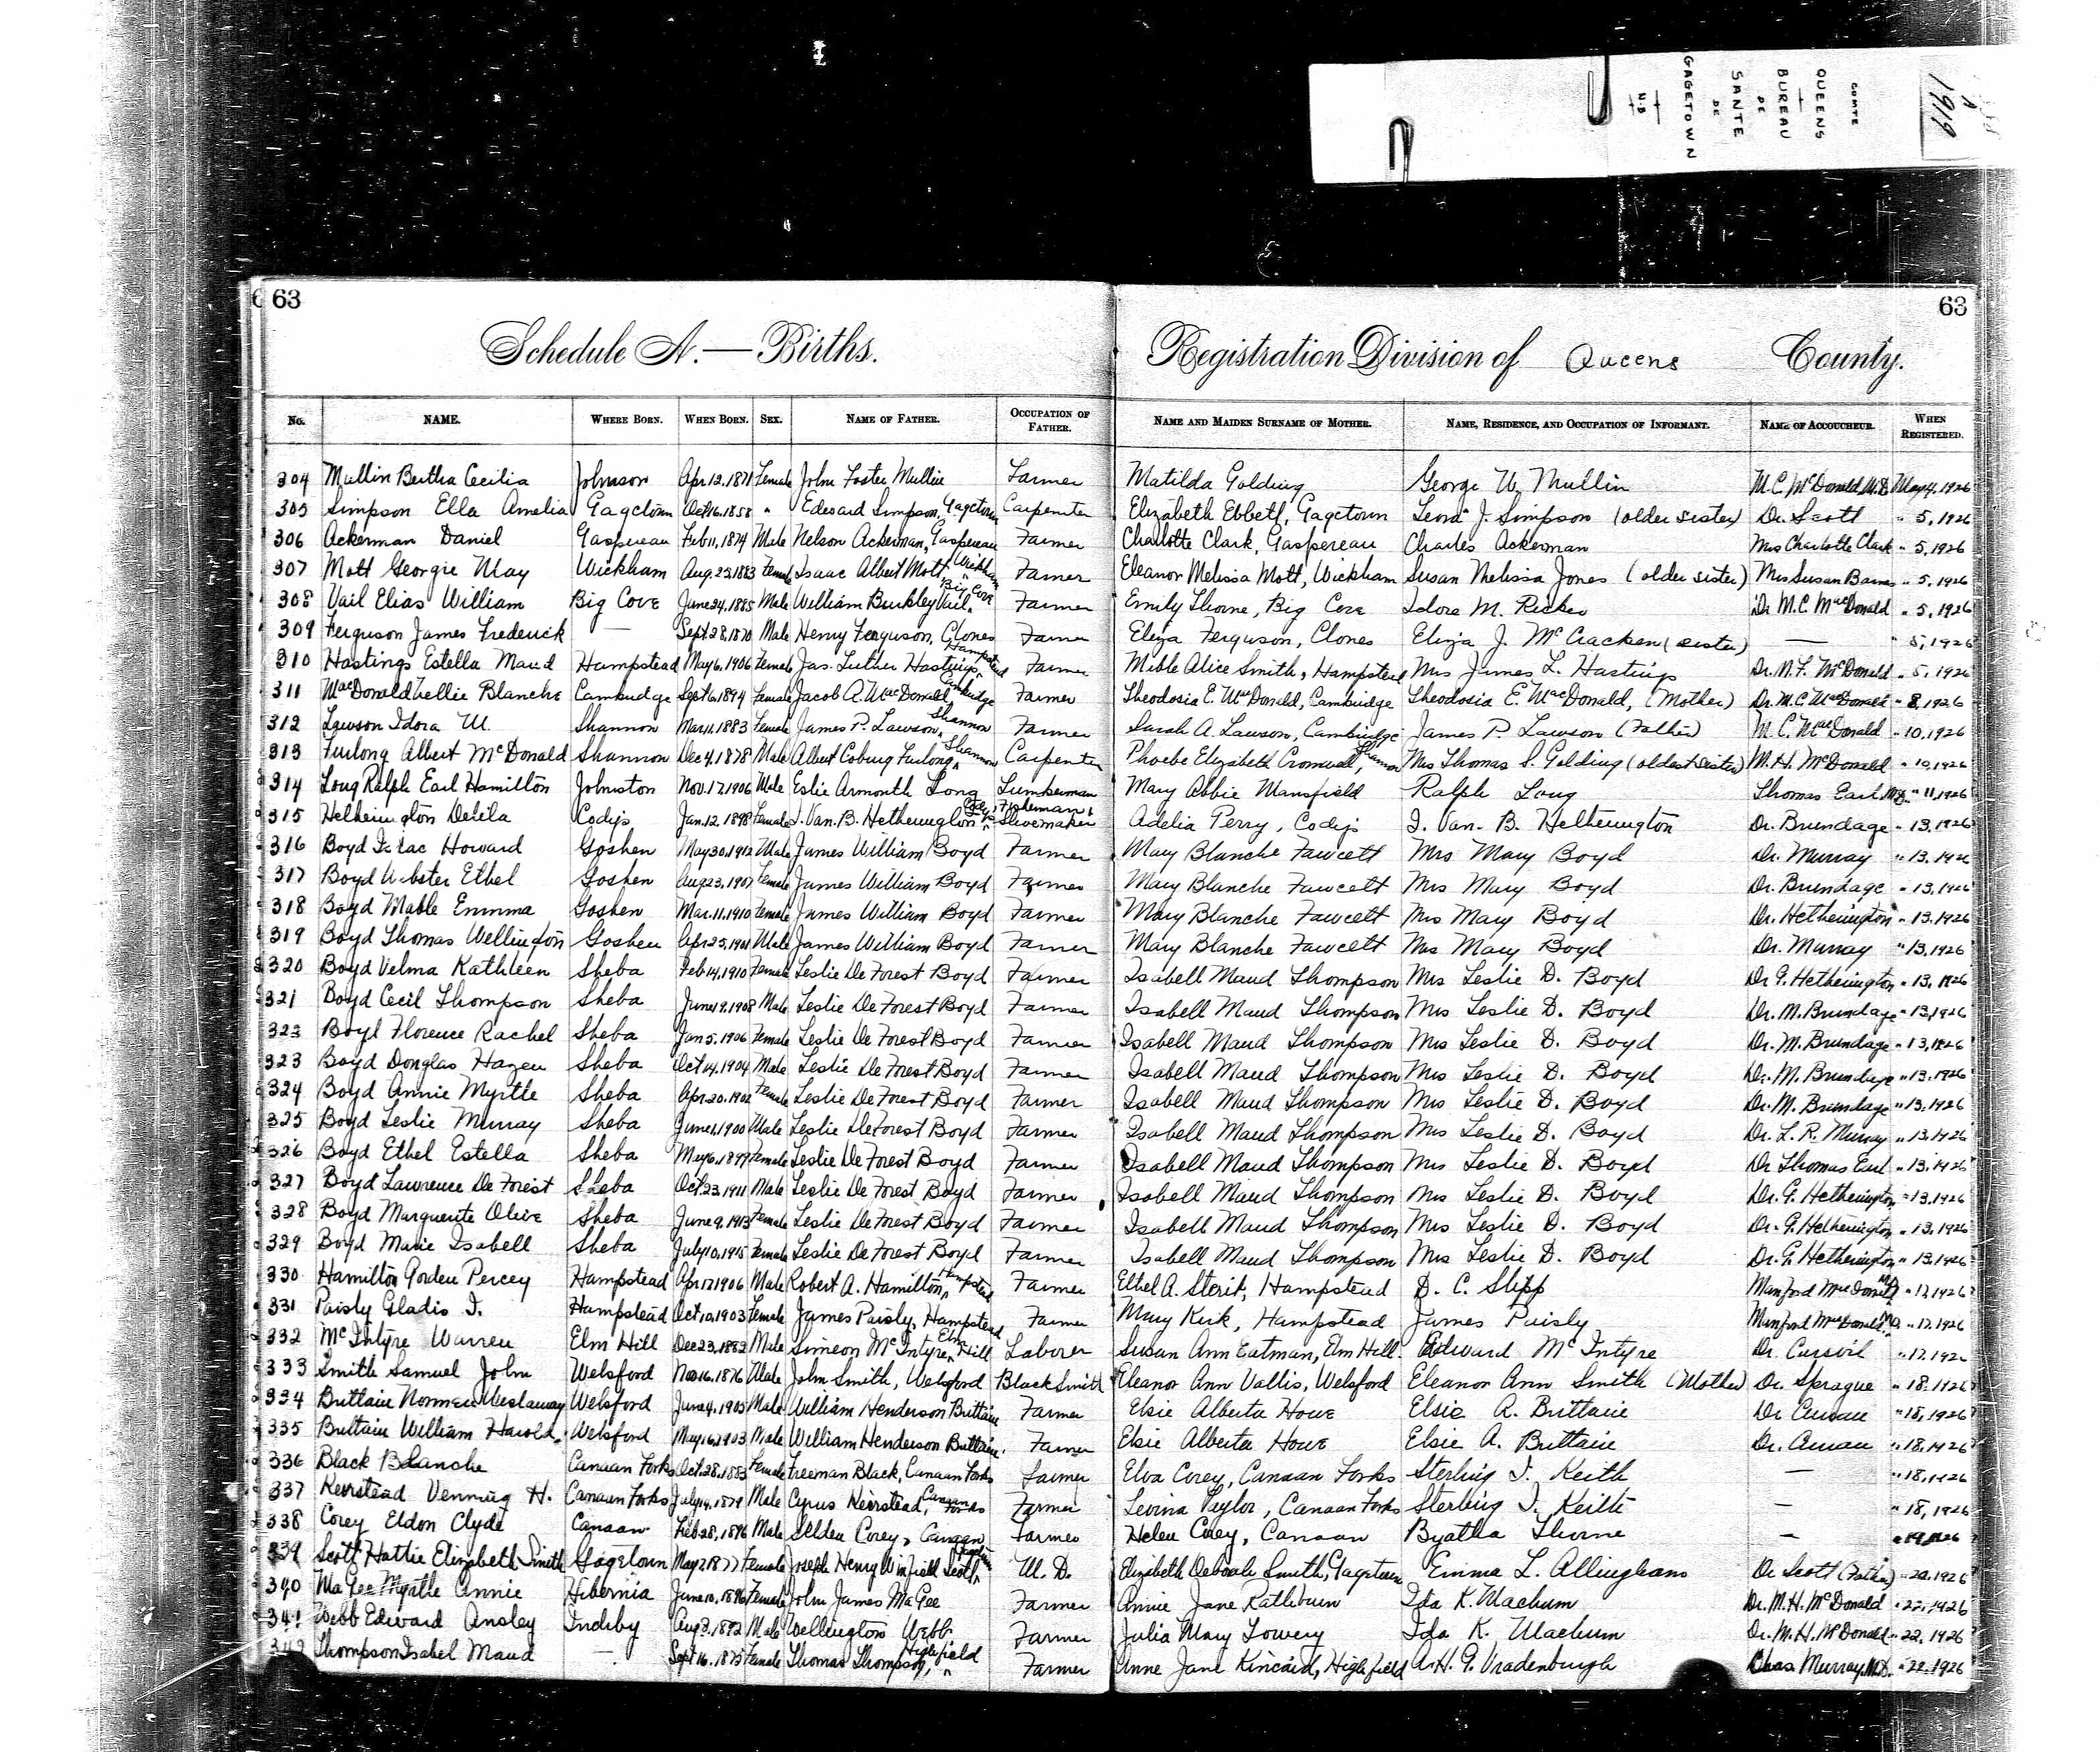 COMTE
QUEENS
BUREAU
DE
SANTE
DE
GAGETOWN
N.B
1919
63 63
Schedule A.—Births. Registration Division of Queens County.
No. NAME. WHERE BORN. WHEN BORN. SEX. NAME OF FATHER. OCCUPATION OF FATHER. NAME AND MAIDEN SURNAME OF MOTHER. NAME, RESIDENCE, AND OCCUPATION OF INFORMANT. NAME OF ACCOUCHEUR. WHEN REGISTERED.
304 Mullin Bertha Cecilia Johnson Apr.12.1871 Female John Foster Mullin Farmer Matilda Golding George W. Mullin M.C. McDonald M.D. May 4, 1926
305 Simpson Ella Amelia Gagetown Oct.16.1858 " Edward Simpson, Gagetown Carpenter Elizabeth Ebbett, Gagetown J. Simpson (older sister) Dr. Scott " 5, 1926
306 Ackerman Daniel Gaspereau Feb 11, 1874 Male Nelson Ackerman, Gaspereau Farmer Charlotte Clark, Gaspereau Charles Ackerman Mrs Charlotte Clark " 5, 1926
307 Mott Georgie May Wickham Aug. 23, 1883 Female Isaac Albert Mott, Wickham Farmer Eleanor Melissa Mott, Wickham Susan Melissa Jones (older sister) Mrs Susan Barnes " 5, 1926
308 Vail Elias William Big Cove June 24, 1885 Male William Bulkley Vail, Big Cove Farmer Emily Thorne, Big Cove Idora M. Ricker Dr M.C. MacDonald " 5, 1926
309 Ferguson James Frederick — Sept 28, 1870 Male Henry Ferguson, Clones Farmer Eliza Ferguson, Clones Eliza J. McCracken (sister) — " 5, 1926
310 Hastings Estella Maud Hampstead May 6, 1906 Female Jas. Luther Hastings, Hampstead Farmer Mible Alice Smith, Hampstead Mrs James L. Hastings Dr. N.F. McDonald " 5, 1926
311 MacDonald Nellie Blanche Cambridge Sept 16, 1894 Female Jacob A. MacDonald, Cambridge Farmer Theodosia E. MacDonald, Cambridge Theodosia E. MacDonald, (Mother) Dr. M.C. MacDonald " 8, 1926
312 Lawson Idora M. Shannon Mar. 11, 1883 Female James P. Lawson, Shannon Farmer Sarah A. Lawson, Cambridge James P. Lawson (Father) M.C. MacDonald " 10, 1926
313 Furlong Albert McDonald Shannon Dec 4, 1878 Male Albert Coburg Furlong, Shannon Carpenter Phoebe Elizabeth Cromwell, Shannon Mrs Thomas S. Golding (oldest sister) M.H. McDonald " 10, 1926
314 Long Ralph Earl Hamilton Johnston Nov. 17, 1906 Male Eslie Armonth Long Lumberman Mary Abbie Mansfield Ralph Long Thomas Earl M.D. " 11, 1926
315 Hetherington Delila Codys Jan. 12, 1898 Female I. Van. B. Hetherington, Codys Fisherman & Shoemaker Adelia Perry, Codys I. Van. B. Hetherington Dr. Brundage " 13, 1926
316 Boyd Isaac Howard Goshen May 30, 1912 Male James William Boyd Farmer Mary Blanche Fawcett Mrs Mary Boyd Dr. Murray " 13, 1926
317 Boyd Webster Ethel Goshen Aug 23, 1907 Female James William Boyd Farmer Mary Blanche Fawcett Mrs Mary Boyd Dr. Brundage " 13, 1926
318 Boyd Mable Emma Goshen Mar. 11, 1910 Female James William Boyd Farmer Mary Blanche Fawcett Mrs Mary Boyd Dr. Hetherington " 13, 1926
319 Boyd Thomas Wellington Goshen Apr 25, 1901 Male James William Boyd Farmer Mary Blanche Fawcett Mrs Mary Boyd Dr. Murray " 13, 1926
320 Boyd Velma Kathleen Sheba Feb 14, 1910 Female Leslie De Forest Boyd Farmer Isabell Maud Thompson Mrs Leslie D. Boyd Dr G. Hetherington " 13, 1926
321 Boyd Cecil Thompson Sheba June 19, 1908 Male Leslie De Forest Boyd Farmer Isabell Maud Thompson Mrs Leslie D. Boyd Dr. M. Brundage " 13, 1926
322 Boyd Florence Rachel Sheba Jan 5, 1906 Female Leslie De Forest Boyd Farmer Isabell Maud Thompson Mrs Leslie D. Boyd Dr. M. Brundage " 13, 1926
323 Boyd Douglas Hazen Sheba Oct 14, 1904 Male Leslie De Forest Boyd Farmer Isabell Maud Thompson Mrs Leslie D. Boyd Dr. M. Brundage " 13, 1926
324 Boyd Annie Myrtle Sheba Apr 20, 1902 Female Leslie De Forest Boyd Farmer Isabell Maud Thompson Mrs Leslie D. Boyd Dr. M. Brundage " 13, 1926
325 Boyd Leslie Murray Sheba June 1, 1900 Male Leslie De Forest Boyd Farmer Isabell Maud Thompson Mrs Leslie D. Boyd Dr. L.R. Murray " 13, 1926
326 Boyd Ethel Estella Sheba May 6, 1899 Female Leslie De Forest Boyd Farmer Isabell Maud Thompson Mrs Leslie D. Boyd Dr Thomas Earl " 13, 1926
327 Boyd Lawrence De Forest Sheba Oct. 23, 1911 Male Leslie De Forest Boyd Farmer Isabell Maud Thompson Mrs Leslie D. Boyd Dr. G. Hetherington " 13, 1926
328 Boyd Marguerite Olive Sheba June 9, 1913 Female Leslie De Forest Boyd Farmer Isabell Maud Thompson Mrs Leslie D. Boyd Dr. G. Hetherington " 13, 1926
329 Boyd Marie Isabell Sheba July 10, 1915 Female Leslie De Forest Boyd Farmer Isabell Maud Thompson Mrs Leslie D. Boyd Dr. G. Hetherington " 13, 1926
330 Hamilton Gorden Percey Hampstead Apr. 17, 1906 Male Robert A. Hamilton, Hampstead Farmer Ethel A. Sterit, Hampstead D. C. Slipp Manford MacDonald MD " 17, 1926
331 Paisly Gladis I. Hampstead Oct 10, 1903 Female James Paisly, Hampstead Farmer Mary Kirk, Hampstead James Paisly Manford MacDonald MD " 17, 1926
332 McIntyre Warren Elm Hill Dec 23, 1882 Male Simeon McIntyre, Elm Hill Laborer Susan Ann Eatman, Elm Hill Edward McIntyre Dr. " 17, 192
333 Smith Samuel John Welsford Nov 16, 1876 Male John Smith, Welsford BlackSmith Eleanor Ann Vallis, Welsford Eleanor Ann Smith (Mother) Dr. Sprague " 18, 1926
334 Brittain Norman Westaway Welsford June 4, 1905 Male William Henderson Brittain Farmer Elsie Alberta Howe Elsie A. Brittain Dr " 18, 1926
335 Brittain William Harold Welsford May 16, 1903 Male William Henderson Brittain Farmer Elsie Alberta Howe Elsie A. Brittain Dr. " 18, 1926
336 Black Blanche Canaan Forks Oct. 28, 1883 Female Freeman Black, Canaan Forks Farmer Elva Corey, Canaan Forks Sterling I. Keith — " 18, 1926
337 Keirstead Venning H. Canaan Forks July 14, 1879 Male Cyrus Keirstead, Canaan Forks Farmer Levina Taylor, Canaan Forks Sterling I. Keith — " 18, 1926
338 Corey Eldon Clyde Canaan Feb 28, 1896 Male Selden Corey, Canaan Farmer Helen Corey, Canaan Byatha Thorne — " 19, 1926
339 Scott Hattie Elizabeth Smith Gagetown May 2, 1877 Female Joseph Henry Winfield Scott, Gagetown M.D. Elizabeth Deborah Smith, Gagetown Emma L. Allingham Dr Scott (Father) " 20, 1926
340 MaGee Myrtle Annie Hibernia June 10, 1896 Female John James MaGee Farmer Annie Jane Rathburn Ida K. Machum Dr. M.H. McDonald " 22, 1926
341 Webb Edward Ansley Inchby Aug 3, 1892 Male Wellington Webb Farmer Julia Mary Lowery Ida K. Machum Dr. M.H. McDonald " 22, 1926
342 Thompson Isabel Maud — Sept 16, 1873 Female Thomas Thompson, Highfield Farmer Anne Jane Kincaid, Highfield A.H.G. Vradenburgh Chas Murray M.D. " 22, 1926